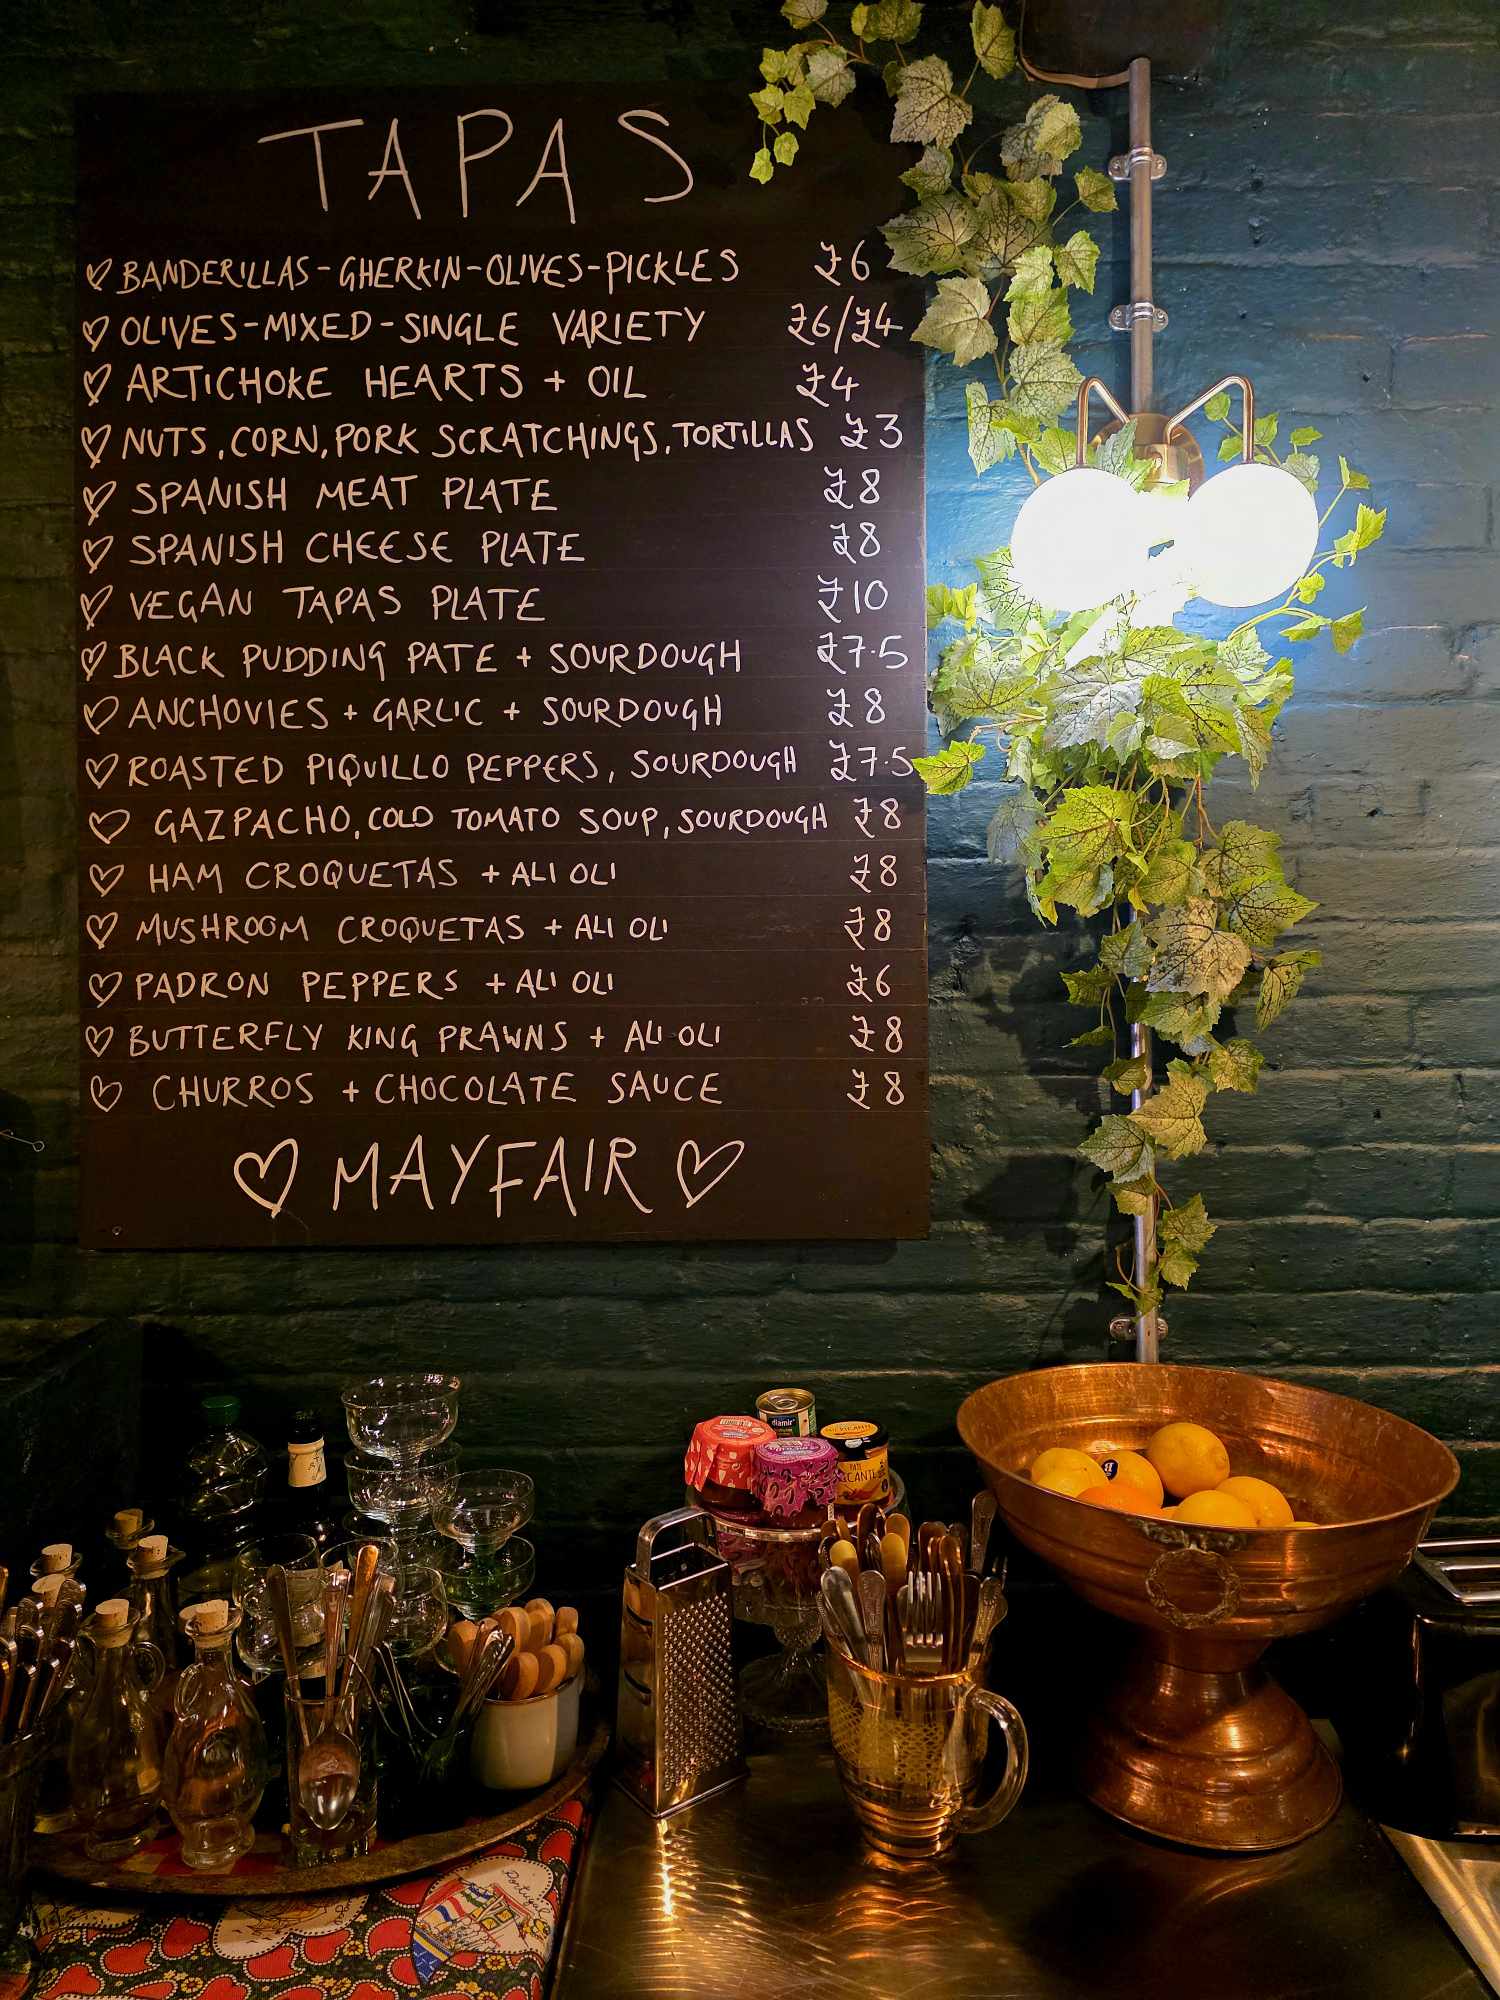 TAPAS
♡ BANDERILLAS-GHERKIN-OLIVES-PICKLES £6
♡ OLIVES-MIXED-SINGLE VARIETY £6/£4
♡ ARTICHOKE HEARTS + OIL £4
♡ NUTS, CORN, PORK SCRATCHINGS, TORTILLAS £3
♡ SPANISH MEAT PLATE £8
♡ SPANISH CHEESE PLATE £8
♡ VEGAN TAPAS PLATE £10
♡ BLACK PUDDING PATE + SOURDOUGH £7.5
♡ ANCHOVIES + GARLIC + SOURDOUGH £8
♡ ROASTED PIQUILLO PEPPERS, SOURDOUGH £7.5
♡ GAZPACHO, COLD TOMATO SOUP, SOURDOUGH £8
♡ HAM CROQUETAS + ALI OLI £8
♡ MUSHROOM CROQUETAS + ALI OLI £8
♡ PADRON PEPPERS + ALI OLI £6
♡ BUTTERFLY KING PRAWNS + ALI OLI £8
♡ CHURROS + CHOCOLATE SAUCE £8
♡ MAYFAIR ♡
diamir
PATE